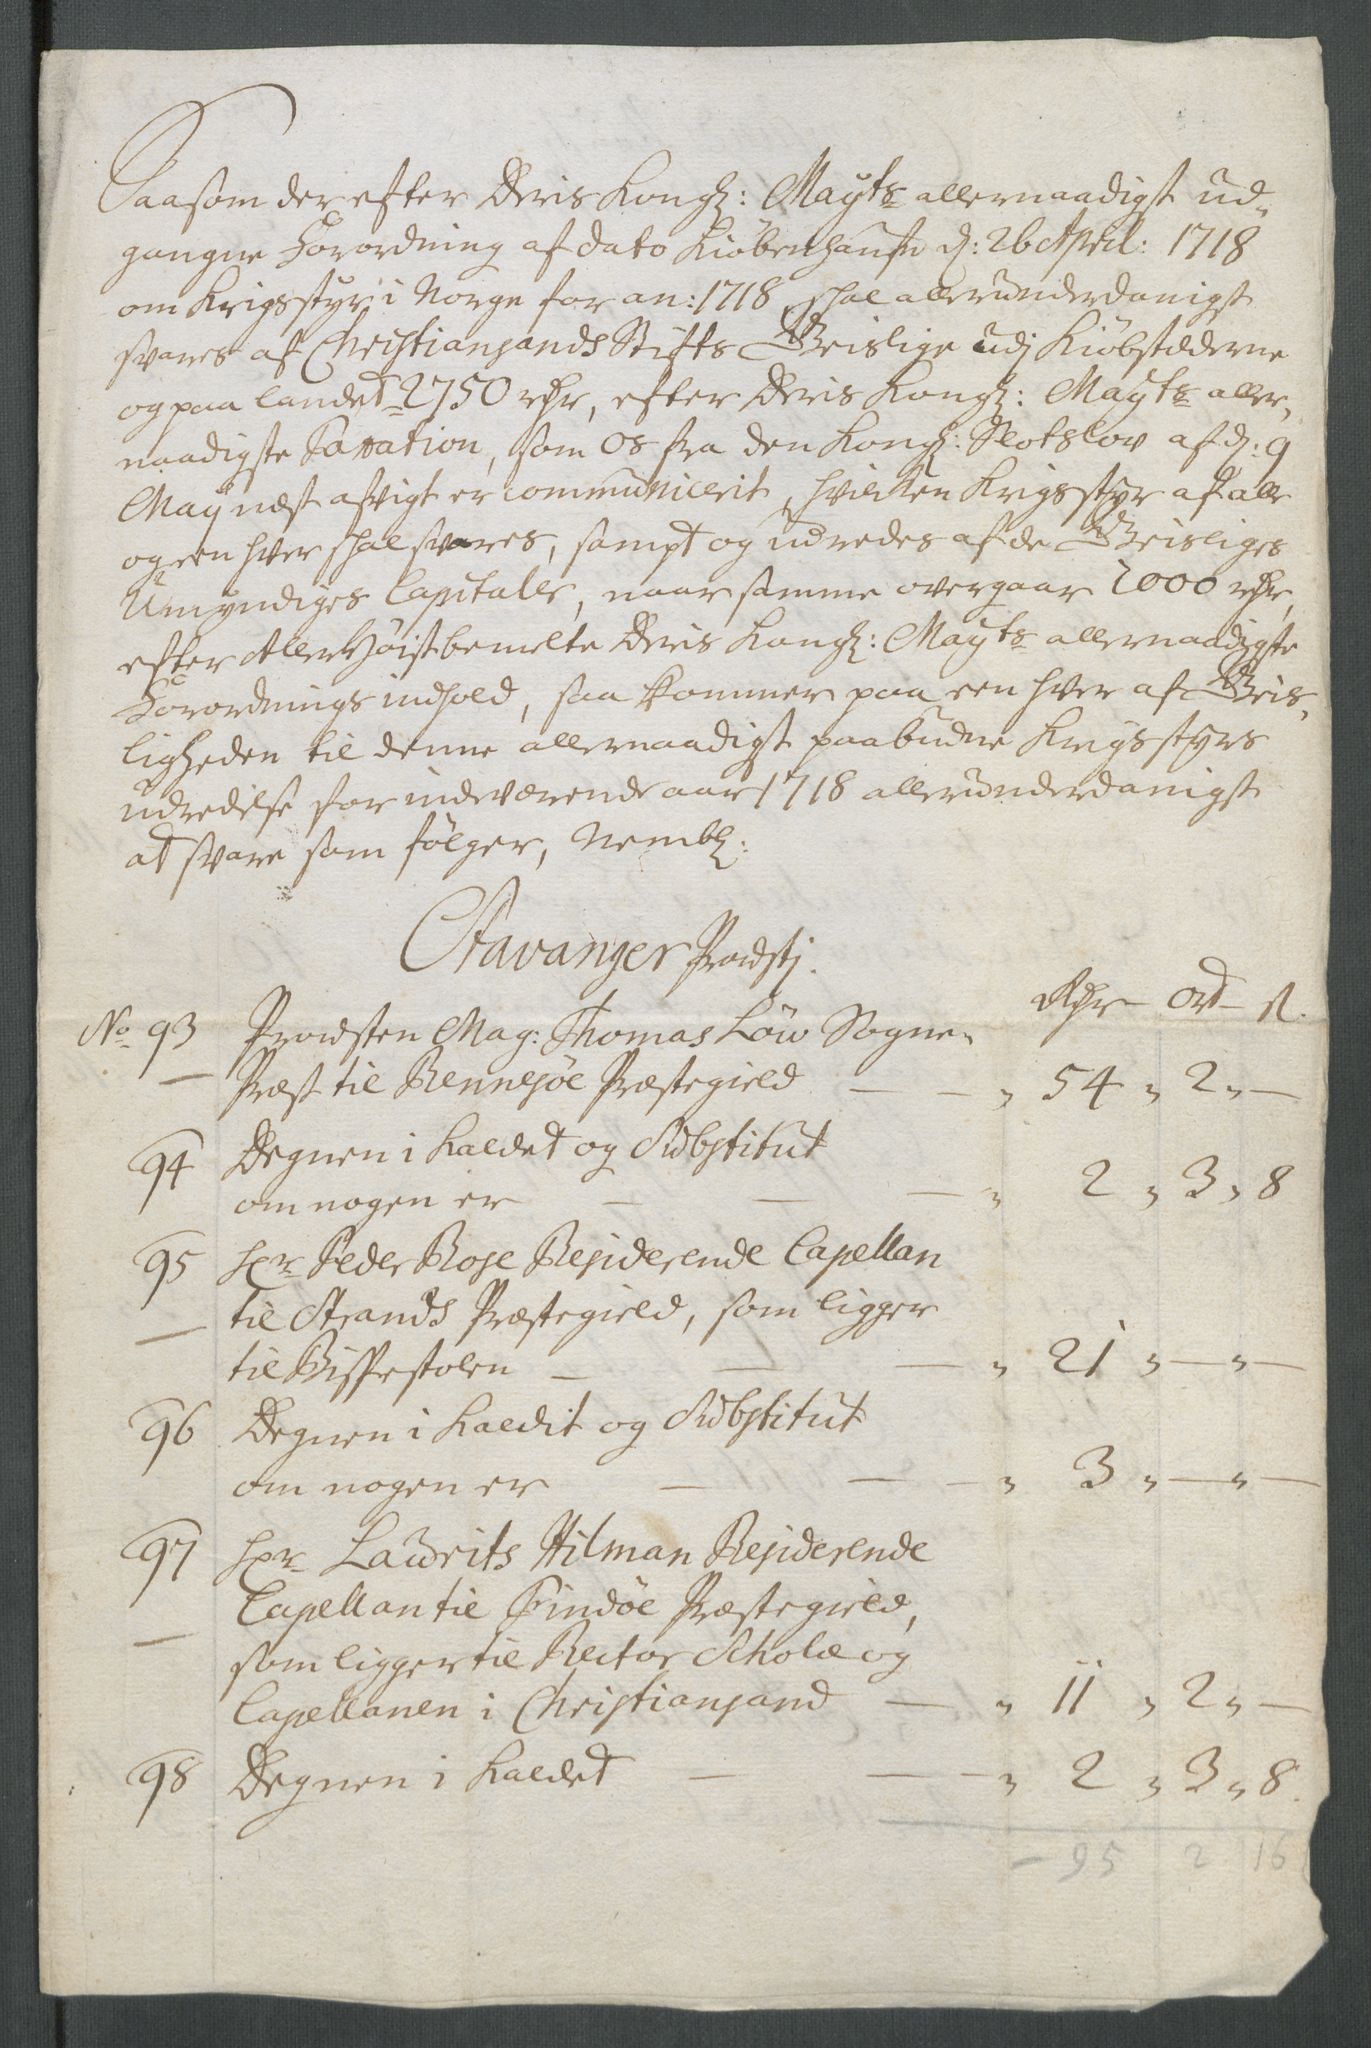 Saasom der efter Deris Kongl: Mayts allernaadigst ud-
gangne Forordning af dato Kiöbenhaufn d: 26 April: 1718
om Krigsstyr i Norge for an: 1718, skal allerunderdanigst
svares af Christiansands Stifts Geistlige udj Kiöbstæderne
og paa landet 2750 rdr, efter Deris Kongl: Mayts aller-
naadigste Taxation, som os fra den Kongl: Slotslov af d: 9
Maij næst afvigt er communicerit, hvilken Krigsstyr af alle
og een hver skal svares, sampt og udredes af de Geistliges
Umyndiges Capitaler, naar samme overgaar 1000 rdr,
efter Allerhöistbemelte Deris Kongl: Mayts allernaadigste
Forordnings indhold, saa kommer paa een hver af Geist-
ligheden til denne allernaadigst paabudne Krigsstyrs
udredelse for indeværende aar 1718 allerunderdanigst
at svare som fölger, Nembl:
Stavanger Provstj.
Rdr ort s.
No 93 Provsten Mag: Thomas Löw Sogne-
Præst til Rennesöe Præstegield — 54 " 2 " —
94 Degnen i Kaldet og Substitut
om nogen er — 2 " 3 " 8
95 Hr Peder Rose Residerende Capellan
til Strands Præstegield, som ligger
til Bispestolen — 21 " — " —
96 Degnen i Kaldit og Substitut
om nogen er — 3 " — " —
97 Hr Laurits Hilman Residerende
Capellan til Findöe Præstegield,
som ligger til Rector Scholæ og
Capellanen i Christiansand — 11 " 2 " —
98 Degnen i Kaldet — 2 " 3 " 8.
— 95 2 16